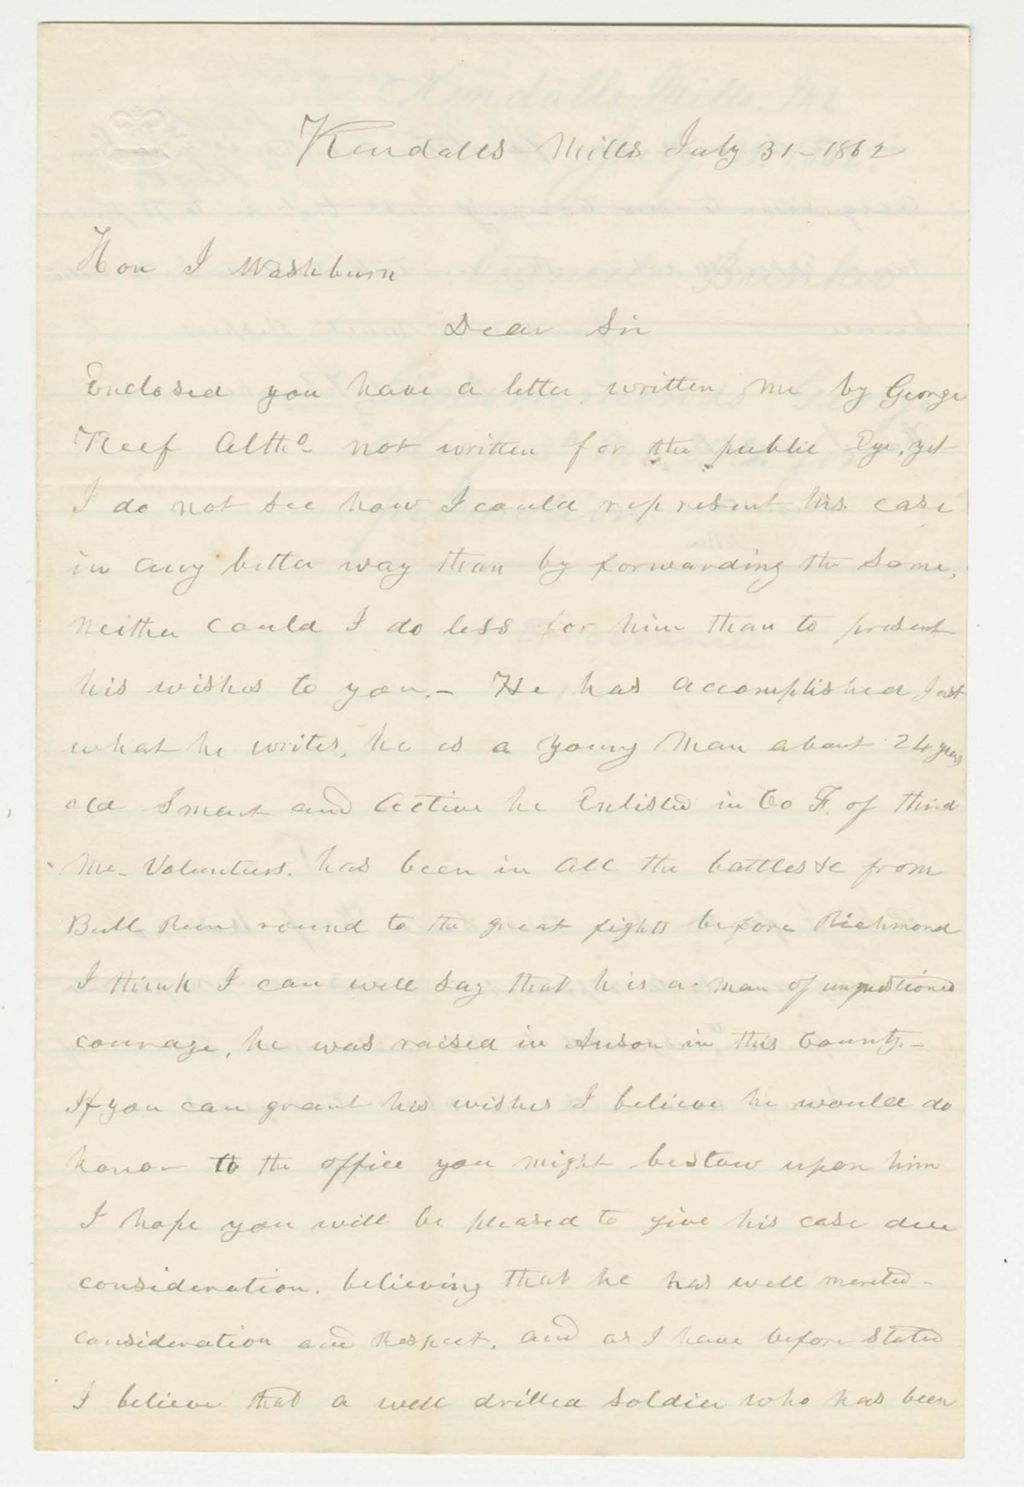 Kendalls Mills July 31 - 1862
Hon I Washburn
Dear Sir
Enclosed you have a letter written me by George
Keef Altho- not written for the public Eye, yet
I do not see how I could represent his case
in any better way than by forwarding the same,
Neither could I do less for him than to present
his wishes to you. - He has accomplished Just
what he writes, he is a young Man about 24 years
old Smart and Active he Enlisted in Co F. of third
Me- Volunteers. has been in All the battles &c from
Bull Run round to the great fights before Richmond
I think I can well say that he is a man of unquestioned
courage, he was raised in Anson in this County. -
If you can grant his wishes I believe he would do
honor to the office you might bestow upon him
I hope you will be pleased to give his case due
consideration. believing that he has well merited -
consideration and Respect. and as I have before stated
I believe that a well drilled soldier who has been